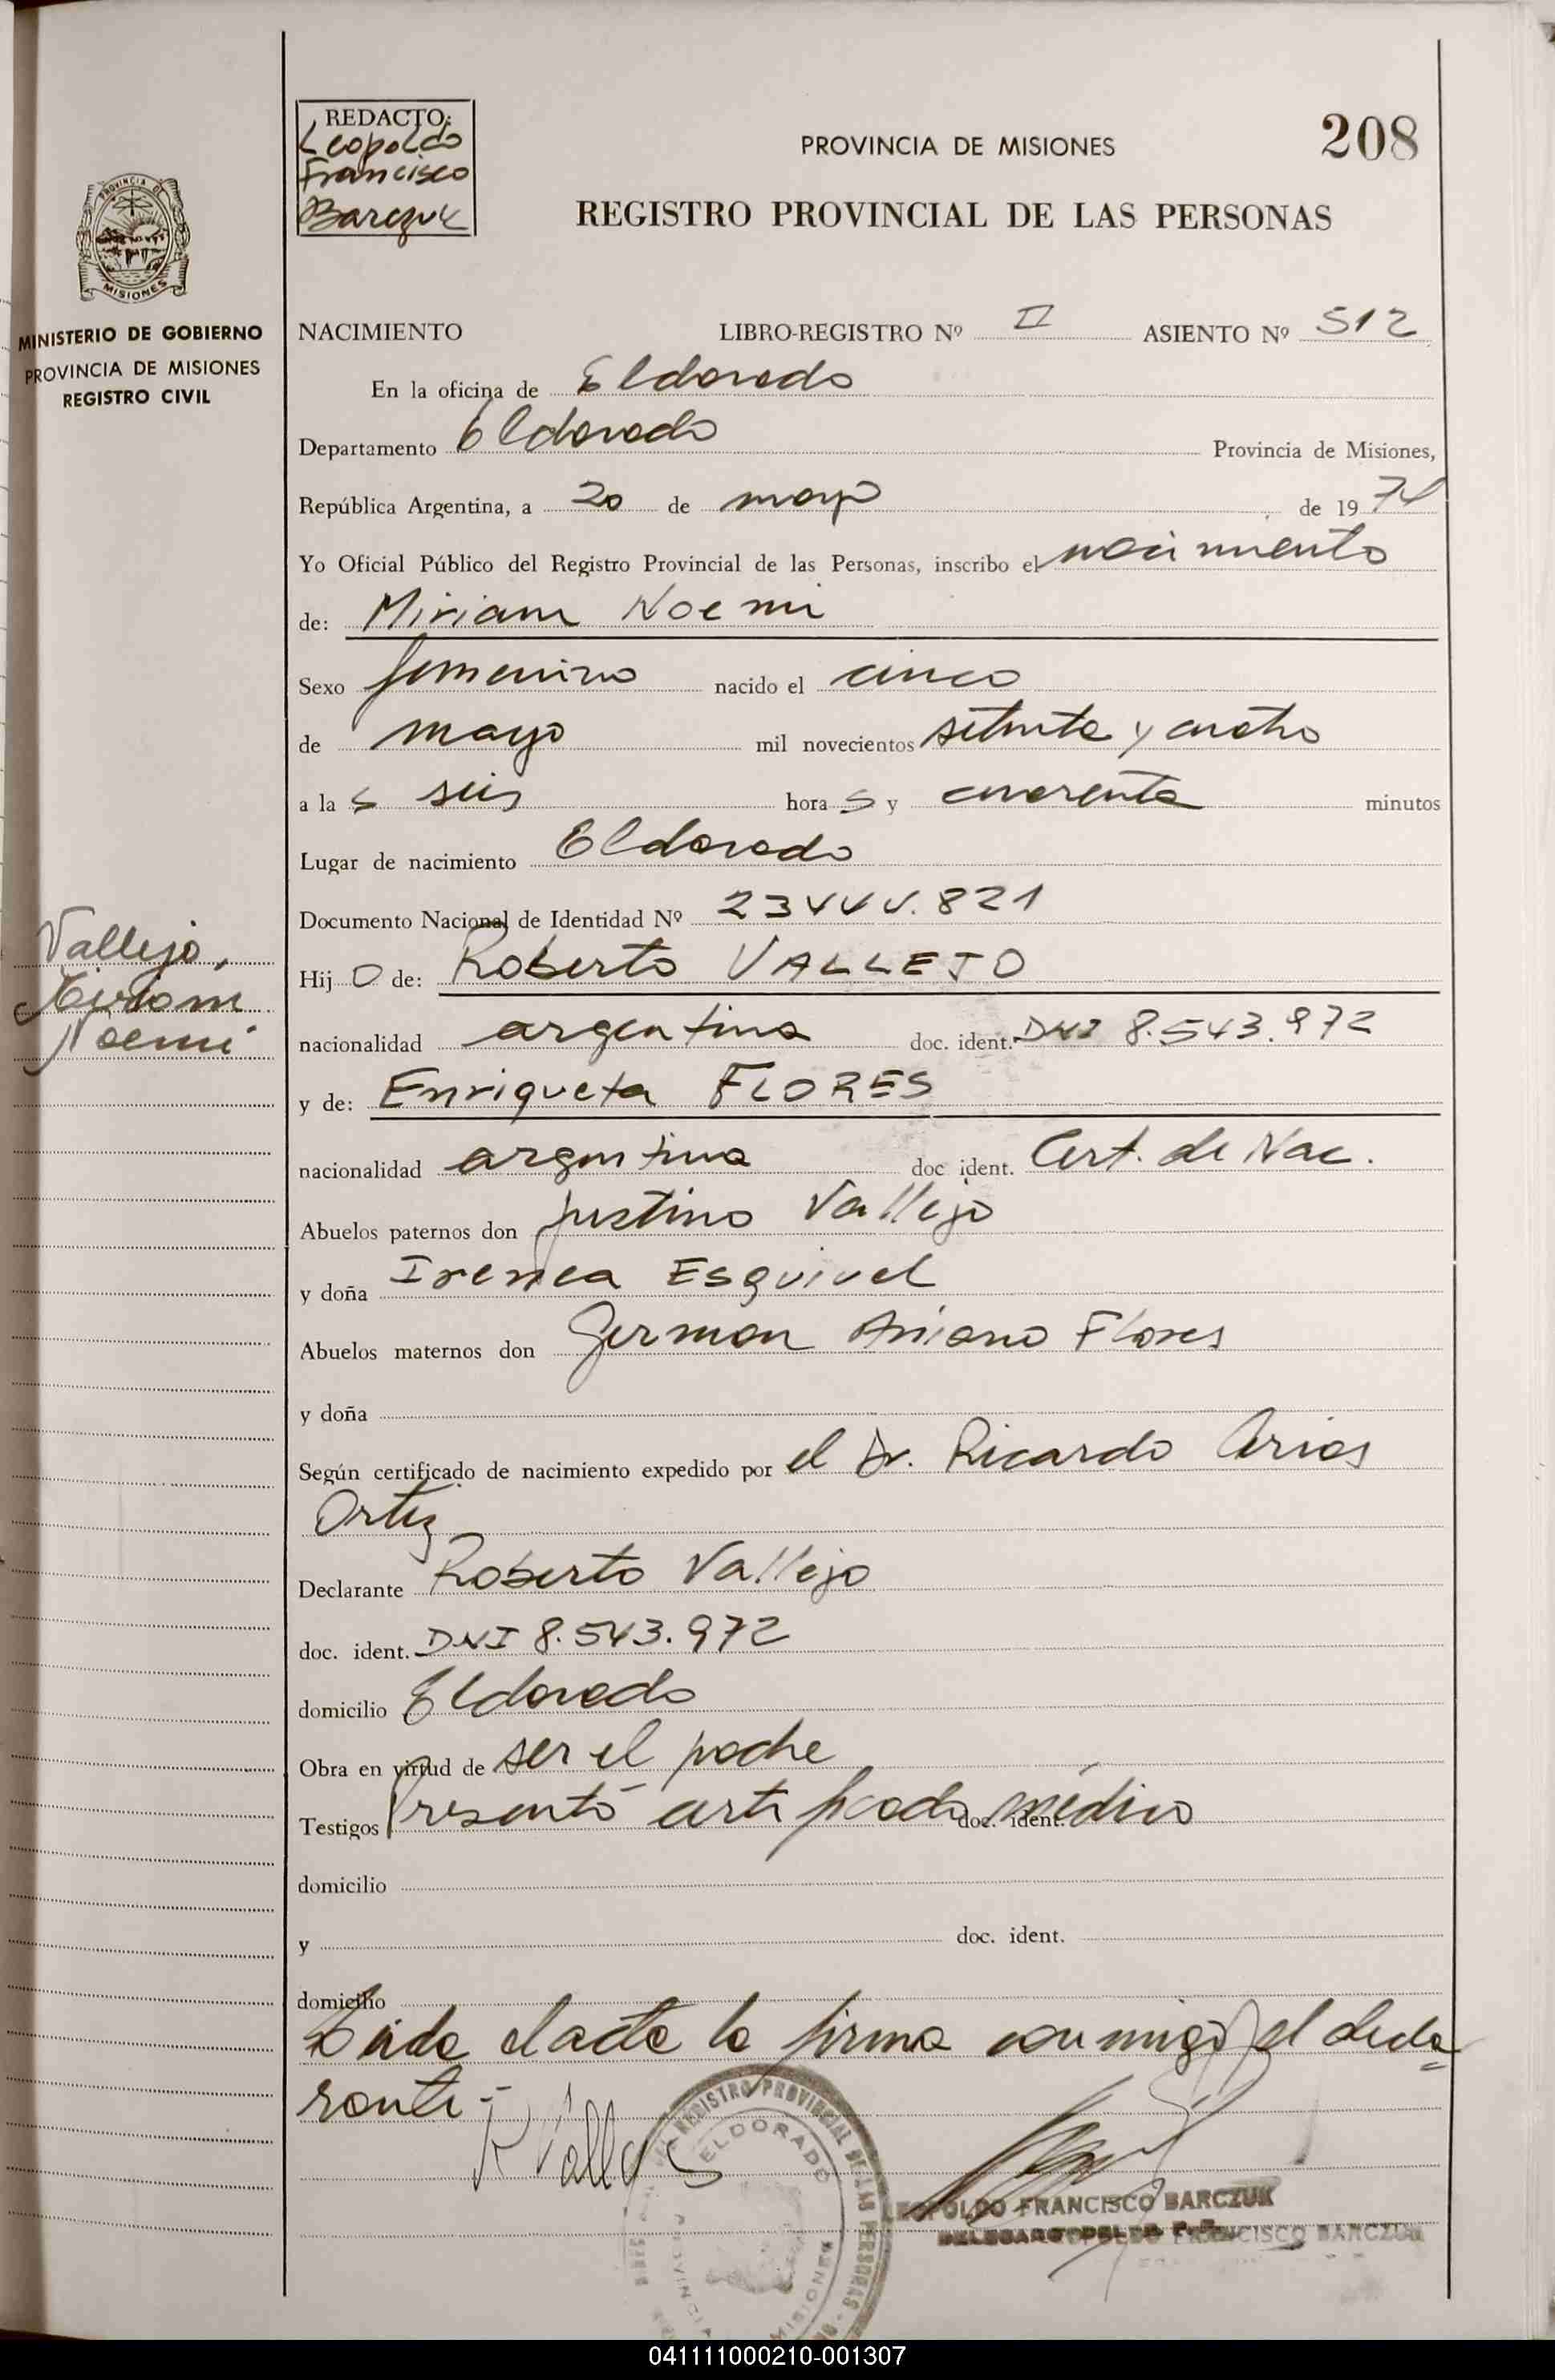 REDACTO:
Leopoldo
Francisco
Barczuk
PROVINCIA DE MISIONES
208
REGISTRO PROVINCIAL DE LAS PERSONAS
PROVINCIA DE
MISIONES
MINISTERIO DE GOBIERNO
PROVINCIA DE MISIONES
REGISTRO CIVIL
NACIMIENTO LIBRO-REGISTRO Nº II ASIENTO Nº 512
En la oficina de Eldorado
Departamento Eldorado Provincia de Misiones,
República Argentina, a 20 de mayo de 1974
Yo Oficial Público del Registro Provincial de las Personas, inscribo el nacimiento
de: Miriam Noemi
Sexo femenino nacido el cinco
de mayo mil novecientos setenta y cuatro
a la s seis hora s y cuarenta minutos
Lugar de nacimiento Eldorado
Documento Nacional de Identidad Nº 23.444.821
Vallejo,
Miriam
Noemi
Hij a de: Roberto VALLEJO
nacionalidad argentina doc. ident. DNI 8.543.972
y de: Enriqueta FLORES
nacionalidad argentina doc ident. Cert. de Nac.
Abuelos paternos don Justino Vallejo
y doña Irenea Esquivel
Abuelos maternos don German Aniano Flores
y doña
Según certificado de nacimiento expedido por el Dr. Ricardo Arias
Ortiz
Declarante Roberto Vallejo
doc. ident. DNI 8.543.972
domicilio Eldorado
Obra en virtud de ser el padre
Testigos Presentó certificado doc. ident. médico
domicilio
y doc. ident.
domicilio
Leida el acta la firma conmigo el decla=
rante.-
R Vallejo
REGISTRO PROVINCIAL DE LAS PERSONAS
ELDORADO
PROVINCIA MISIONES
LEOPOLDO FRANCISCO BARCZUK
LEOPOLDO FRANCISCO BARCZUK
041111000210-001307